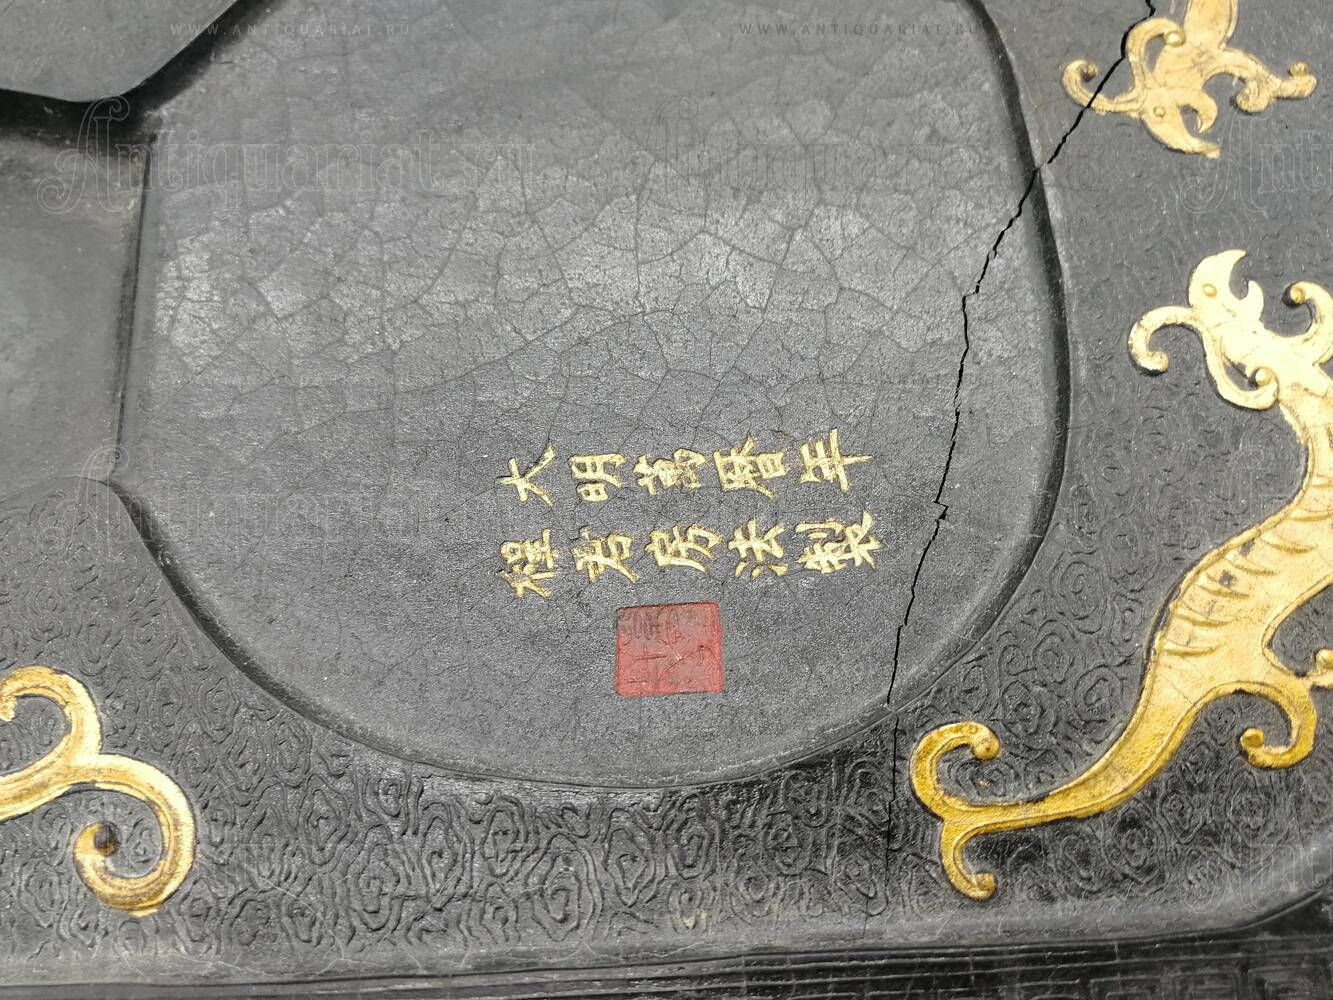 WWW.ANTIQUARIAT.RU
WWW.ANTIQUARIAT.RU
Antiquariat.ru
Antiquariat.ru
大明萬曆年
程君房法製